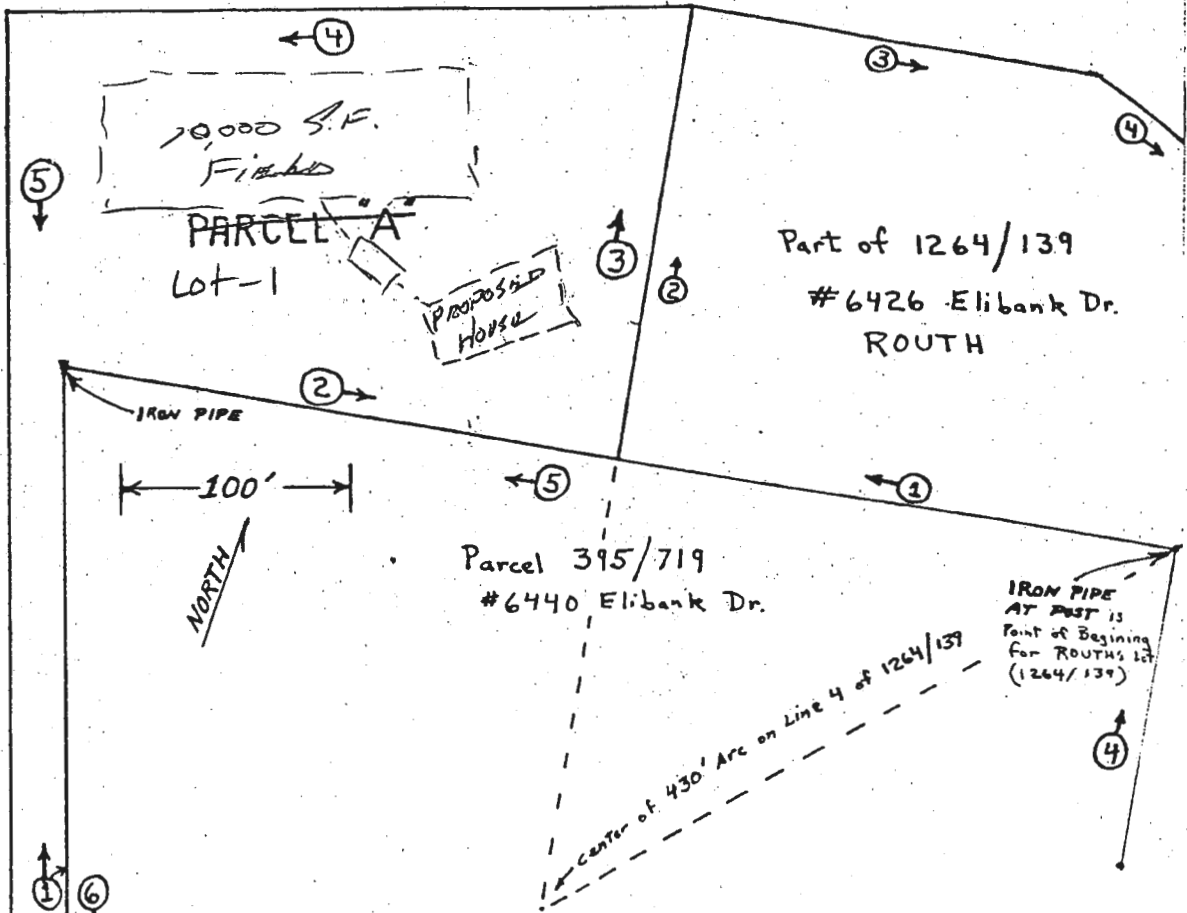 4
3
4
5
10,000 S.F.
Field
PARCEL "A"
Lot-1
PROPOSED
HOUSE
3
2
Part of 1264/139
#6426 Elibank Dr.
ROUTH
2
IRON PIPE
100'
5
1
NORTH
Parcel 395/719
#6440 Elibank Dr.
IRON PIPE
AT POST is
Point of Begining
for ROUTH's Lot
(1264/139)
Center of 430' Arc on Line 4 of 1264/139
4
1
6